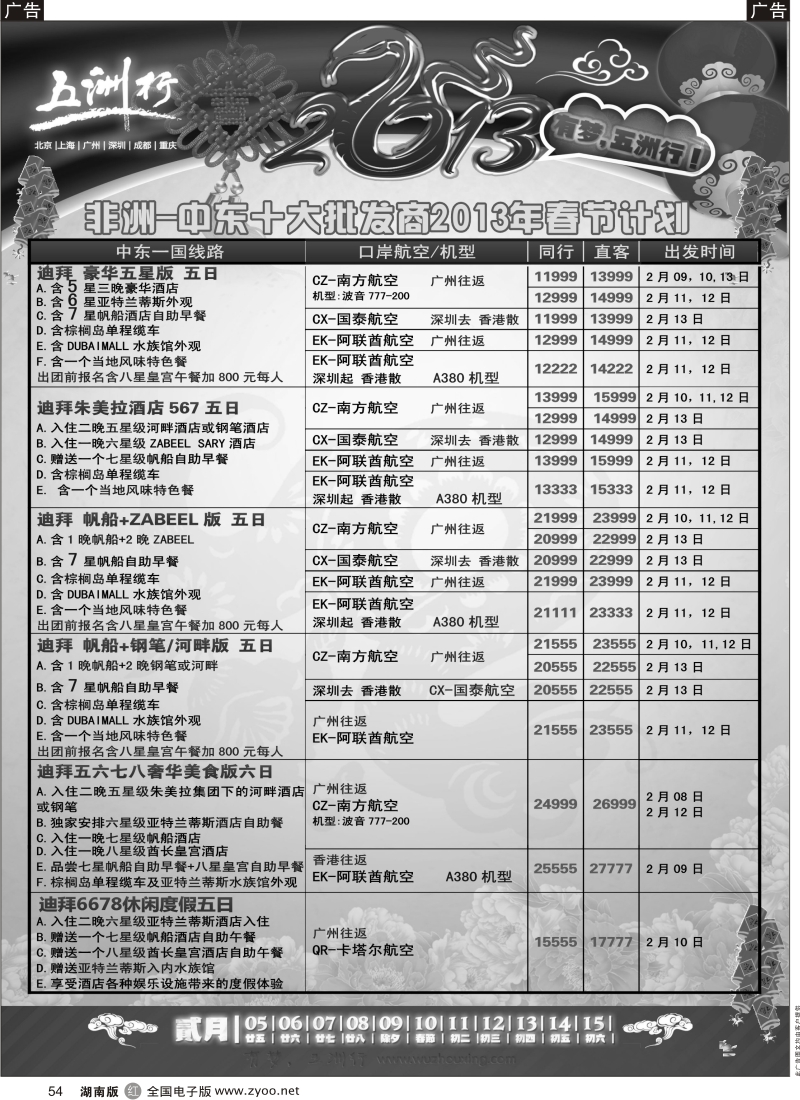 广告
广告
五洲行
北京|上海|广州|深圳|成都|重庆
2013
有梦,五洲行!
非洲-中东十大批发商2013年春节计划
中东一国线路 口岸航空/机型 同行 直客 出发时间
迪拜 豪华五星版 五日
A.含5 星三晚豪华酒店
B.含6 星亚特兰蒂斯外观
C.含7 星帆船酒店自助早餐
D.含棕榈岛单程缆车
E.含DUBAIMALL 水族馆外观
F.含一个当地风味特色餐
出团前报名含八星皇宫午餐加 800 元每人
CZ-南方航空 广州往返
机型:波音 777-200
11999 13999 2 月 09,10,13 日
12999 14999 2 月 11, 12 日
CX-国泰航空 深圳去 香港散 11999 13999 2 月 13 日
EK-阿联酋航空 广州往返 12999 14999 2 月 11, 12 日
EK-阿联酋航空
深圳起 香港散 A380 机型
12222 14222 2 月 11, 12 日
迪拜朱美拉酒店 567 五日
A.入住二晚五星级河畔酒店或钢笔酒店
B.入住一晚六星级 ZABEEL SARY 酒店
C.赠送一个七星级帆船自助早餐
D.含棕榈岛单程缆车
E. 含一个当地风味特色餐
CZ-南方航空 广州往返
13999 15999 2 月 10,11,12 日
12999 14999 2 月 13 日
CX-国泰航空 深圳去 香港散 12999 14999 2 月 13 日
EK-阿联酋航空 广州往返 13999 15999 2 月 11, 12 日
EK-阿联酋航空
深圳起 香港散 A380 机型
13333 15333 2 月 11, 12 日
迪拜 帆船+ZABEEL 版 五日
A.含 1 晚帆船+2 晚 ZABEEL
B.含 7 星帆船自助早餐
C.含棕榈岛单程缆车
D.含 DUBAIMALL 水族馆外观
E.含一个当地风味特色餐
出团前报名含八星皇宫午餐加 800 元每人
CZ-南方航空 广州往返
21999 23999 2 月 10,11,12 日
20999 22999 2 月 13 日
CX-国泰航空 深圳去 香港散 20999 22999 2 月 13 日
EK-阿联酋航空 广州往返 21999 23999 2 月 11, 12 日
EK-阿联酋航空
深圳起 香港散 A380 机型
21111 23333 2 月 11, 12 日
迪拜 帆船+钢笔/河畔版 五日
A.含 1 晚帆船+2 晚钢笔或河畔
B.含 7 星帆船自助早餐
C.含棕榈岛单程缆车
D.含 DUBAIMALL 水族馆外观
E.含一个当地风味特色餐
出团前报名含八星皇宫午餐加 800 元每人
CZ-南方航空 广州往返
21555 23555 2 月 10,11,12 日
20555 22555 2 月 13 日
深圳去 香港散 CX-国泰航空 20555 22555 2 月 13 日
广州往返
EK-阿联酋航空
21555 23555 2 月 11, 12 日
迪拜五六七八奢华美食版六日
A.入住二晚五星级朱美拉集团下的河畔酒店
或钢笔
B.独家安排六星级亚特兰蒂斯酒店自助餐
C.入住一晚七星级帆船酒店
D.入住一晚八星级酋长皇宫酒店
E.品尝七星帆船自助早餐+八星皇宫自助早餐
F.棕榈岛单程缆车及亚特兰蒂斯水族馆外观
广州往返
CZ-南方航空
机型:波音 777-200
24999 26999 2 月 08 日
2 月 12 日
香港往返
EK-阿联酋航空 A380 机型
25555 27777 2 月 09 日
迪拜6678休闲度假五日
A.入住二晚六星级亚特兰蒂斯酒店入住
B.赠送一个七星级帆船酒店自助午餐
C.赠送一个八星级酋长皇宫酒店自助午餐
D.赠送亚特兰蒂斯入内水族馆
E.享受酒店各种娱乐设施带来的度假体验
广州往返
QR-卡塔尔航空
15555 17777 2 月 10 日
贰月|05|06|07|08|09|10|11|12|13|14|15|
廿五|廿六|廿七|廿八|除夕|春节|初二|初三|初四|初五|初六|
54 湖南版 红 全国电子版 www.zyoo.net